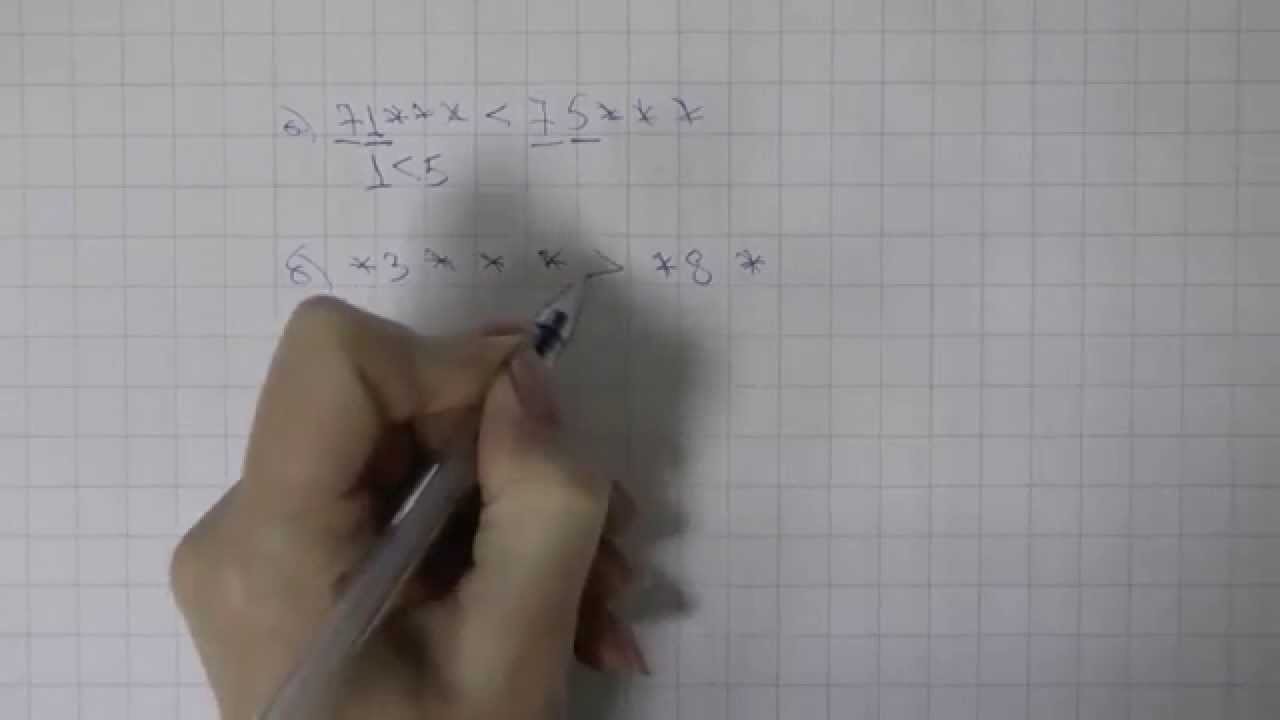 а) 71*** < 75***
1<5
б) *3*** > *8*